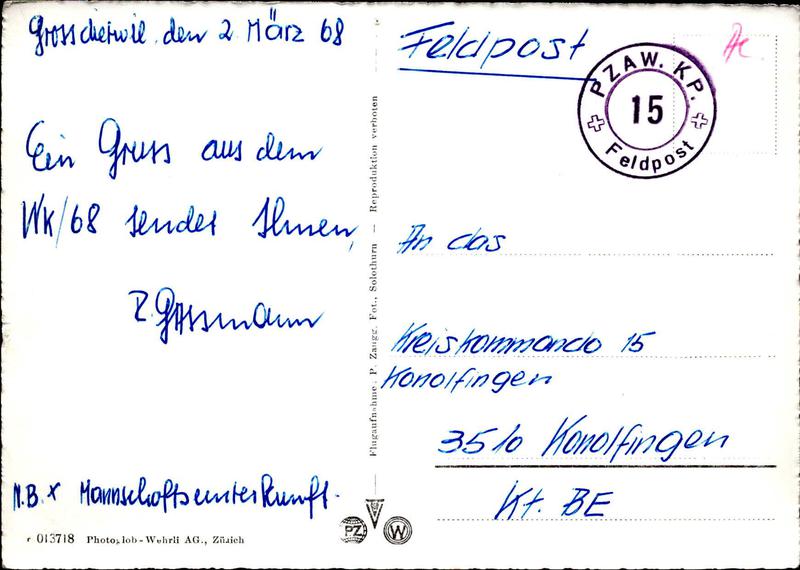 Grosshetwil, den 2 März 68
Ein Gruss aus dem
WK/68 sendet Ihnen,
Gassmann
N.B. x Mannschaftsunterkunft.
013718 Photoglob-Wehrli AG., Zürich
Flugaufnahme: P. Zaugg, Fot., Solothurn – Reproduktion verboten
PZ
W
Feldpost
PZAW. KP.
15
Feldpost
An das
Kreiskommando 15
Konolfingen
3510 Konolfingen
Kt. BE